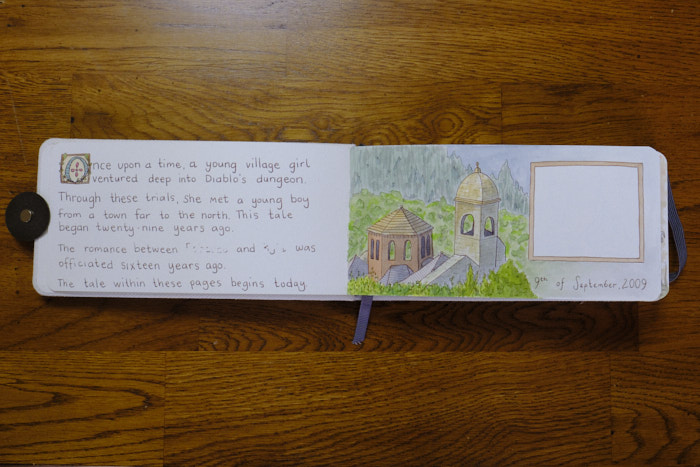 Once upon a time, a young village girl
ventured deep into Diablo's dungeon.
Through these trials, she met a young boy
from a town far to the north. This tale
began twenty-nine years ago.
The romance between and was
officiated sixteen years ago.
The tale within these pages begins today.
9th of September, 2009